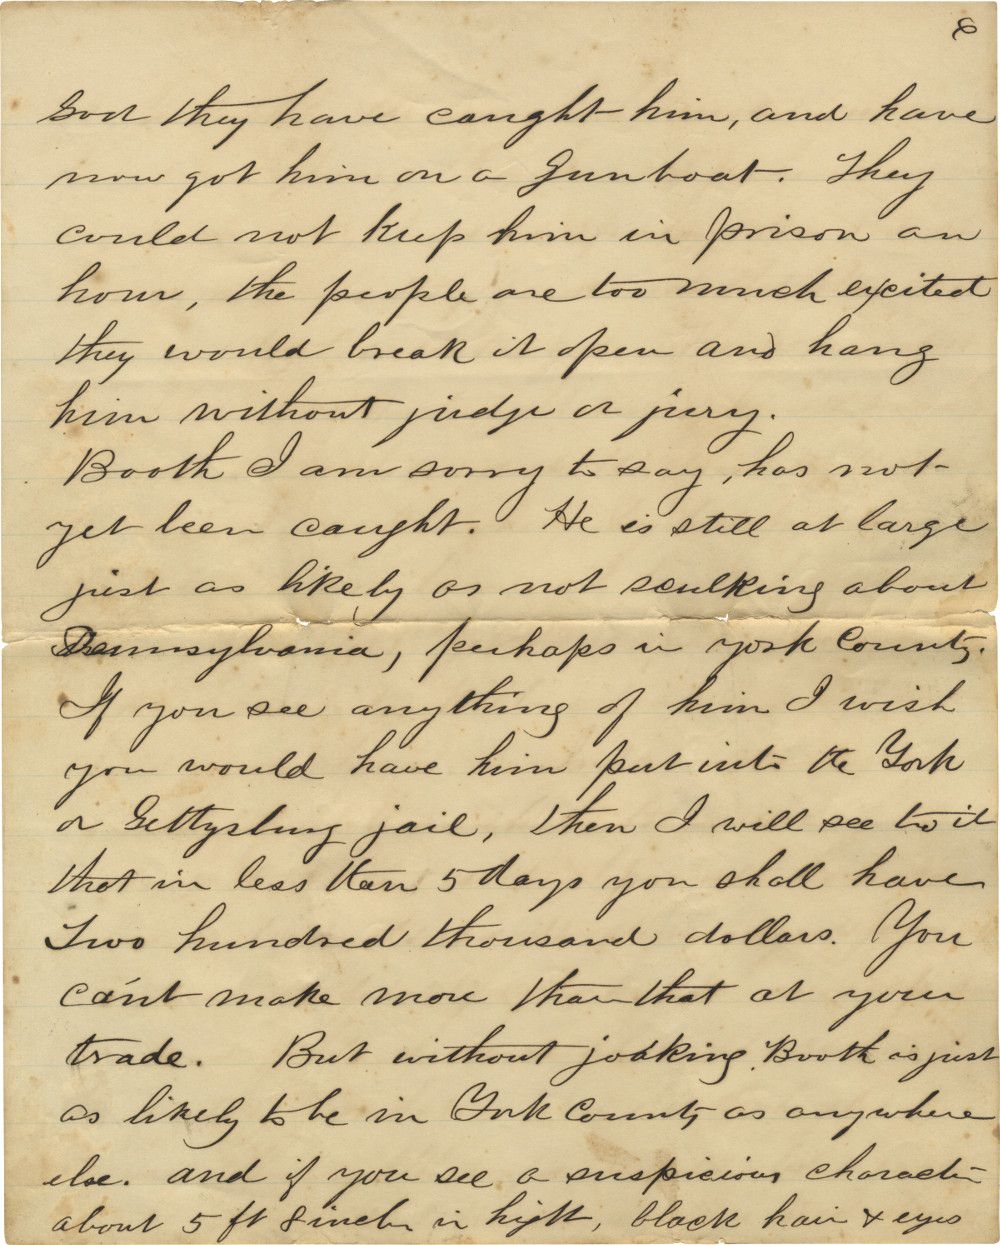 6
God they have caught him, and have
now got him on a Gunboat. They
could not keep him in prison an
hour, the people are too much excited
they would break it open and hang
him without judge or jury.
Booth I am sorry to say, has not
yet been caught. He is still at large
just as likely as not sculking about
Pennsylvania, perhaps in york County.
If you see anything of him I wish
you would have him put into the York
or Gettysburg jail, then I will see to it
that in less than 5 days you shall have
Two hundred thousand dollars. You
ca'nt make more than that at your
trade. But without joking Booth is just
as likely to be in York County as anywhere
else. and if you see a suspicious character
about 5 ft 8 inch in hight, black hair & eyes